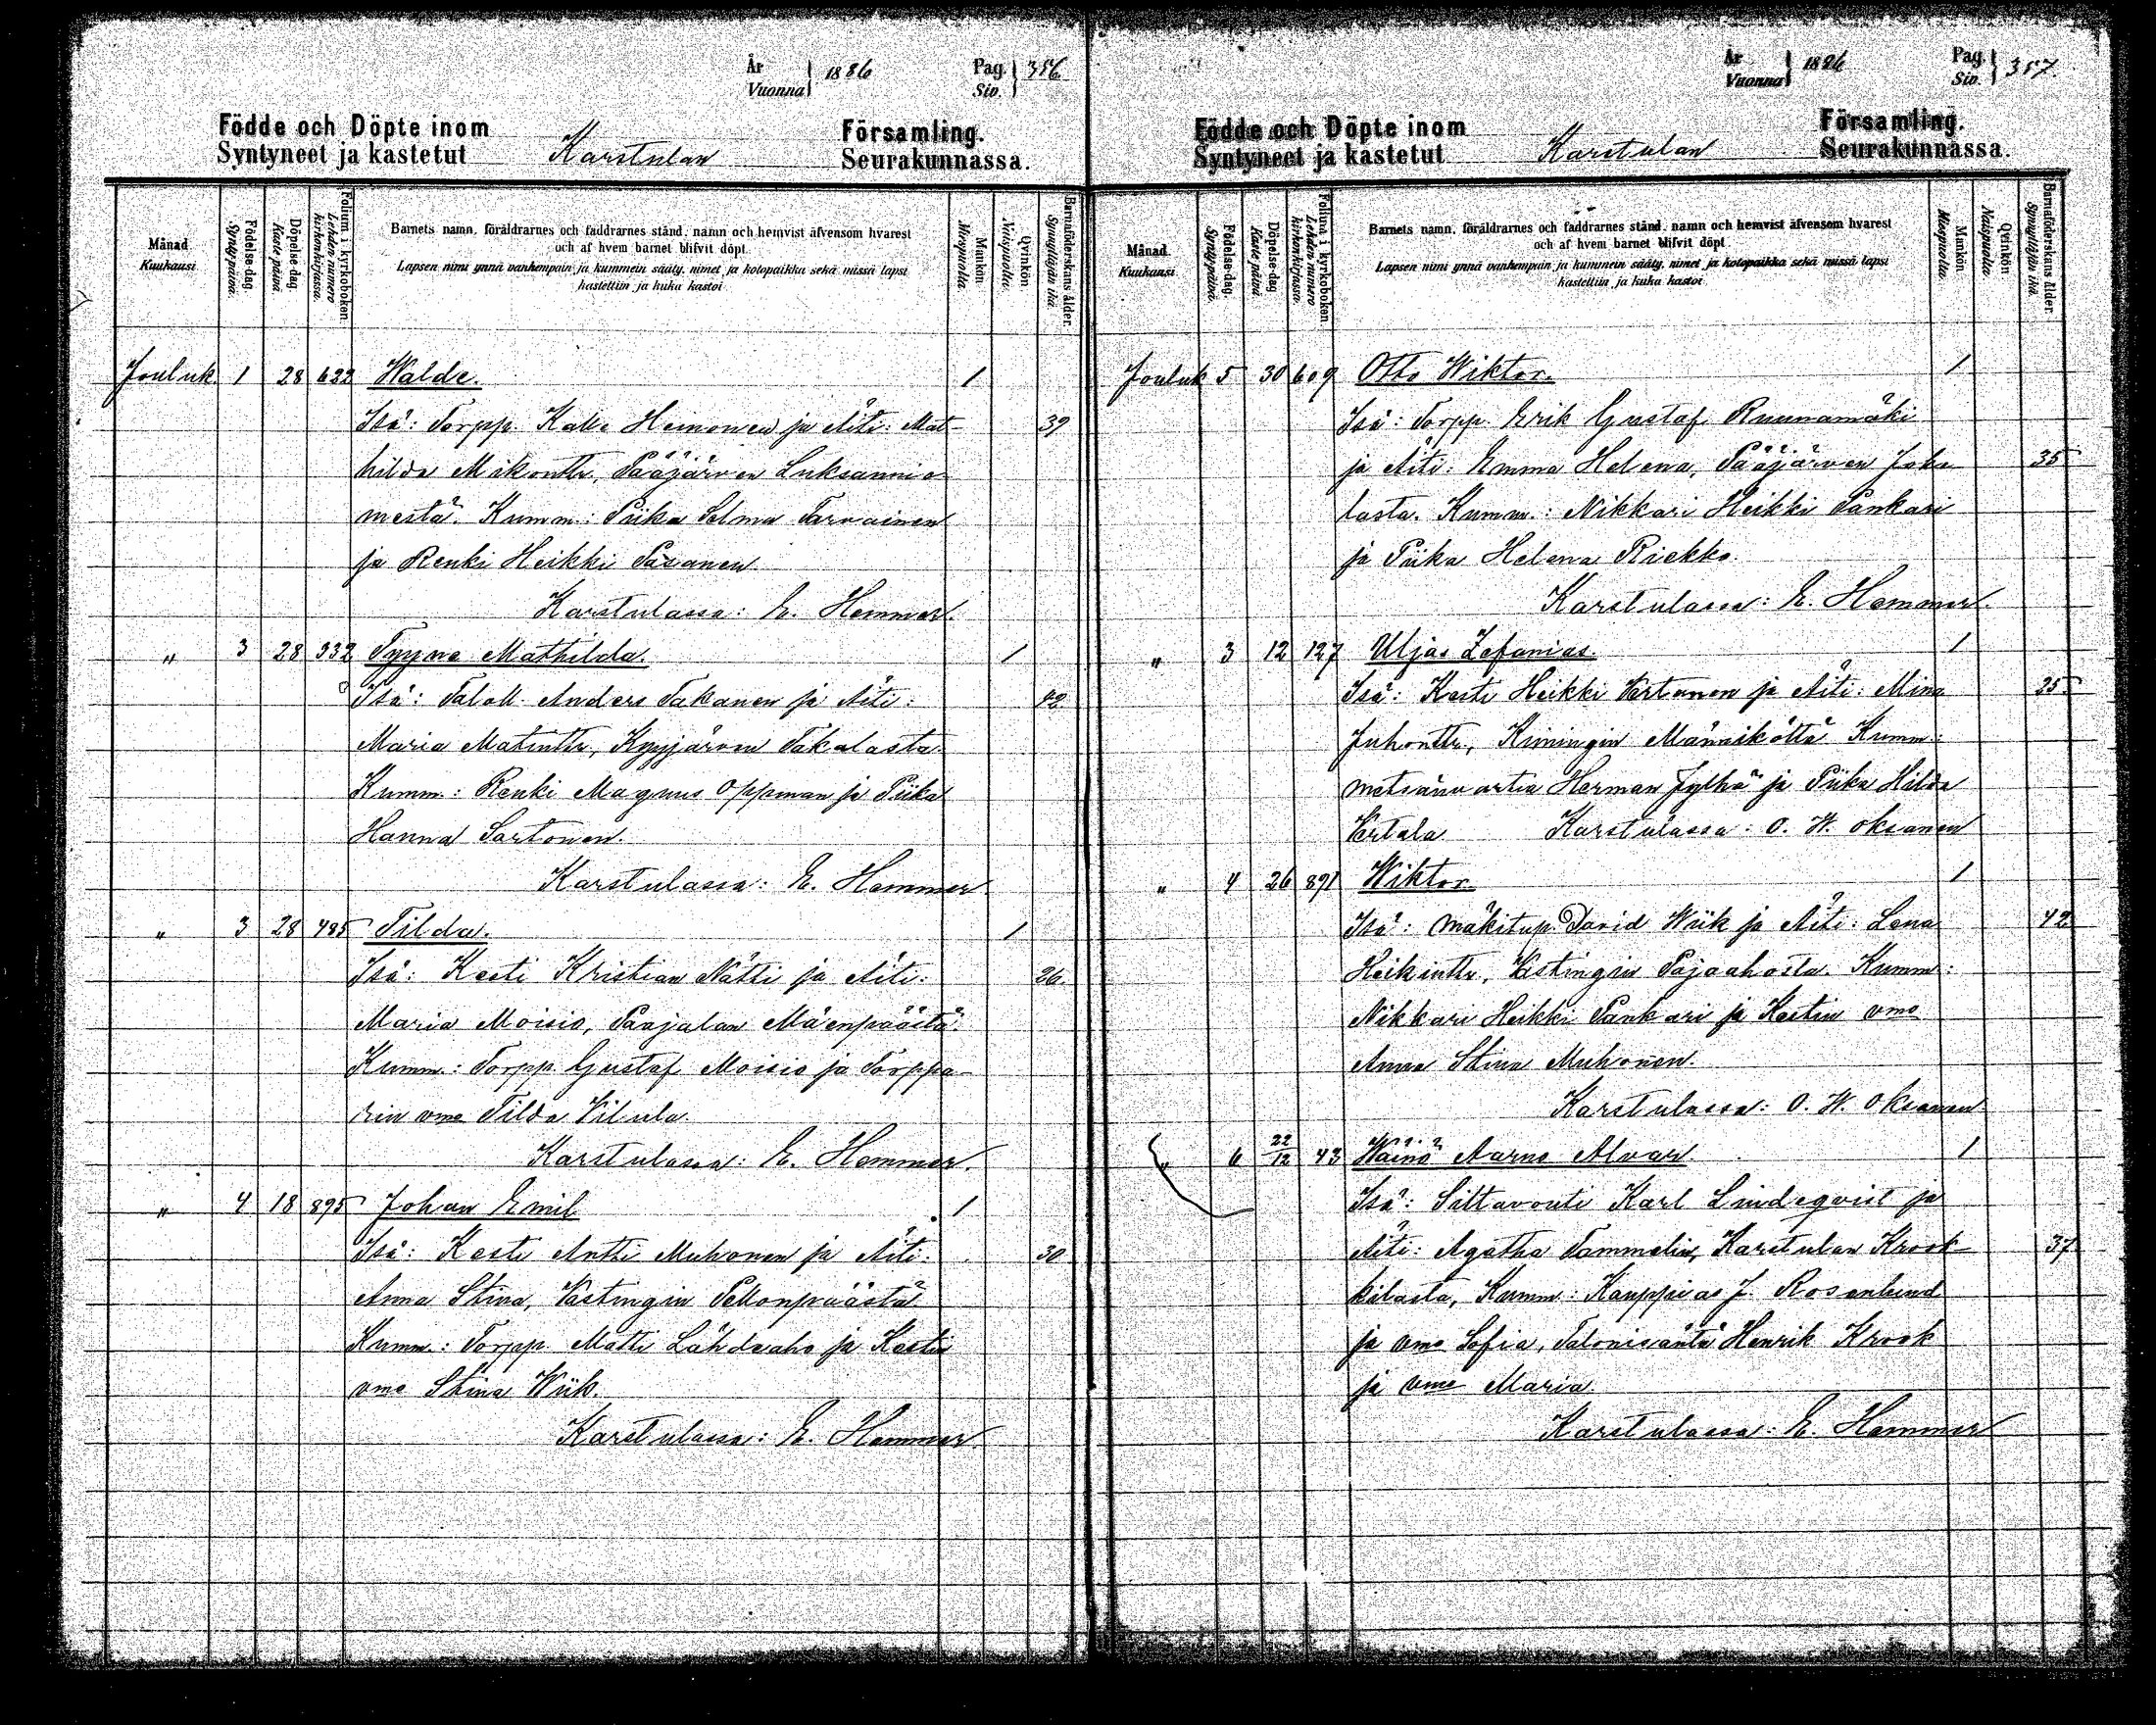 År Vuonna } 1886 Pag. Siv. } 356
Födde och Döpte inom Församling.
Syntyneet ja kastetut Karstulan Seurakunnassa.
Månad Kuukausi
Födelse-dag. Syntypäivä.
Döpelse-dag Kaste päivä.
Folium i kyrkoboken Lehden numero kirkonkirjassa.
Barnets namn, föräldrarnes och faddrarnes stånd, namn och hemvist äfvensom hvarest
och af hvem barnet blifvit döpt.
Lapsen nimi ynnä vanhempain ja kummein sääty, nimet ja kotopaikka sekä missä lapsi
kastettiin ja kuka kastoi
Mankön Miespuolia.
Qvinkön Naispuolia.
Barnaföderskans ålder. Synnyttäjän ikä.
Jouluk. 1 28 622 Walde. 1
Isä: Torpp. Kalle Heinonen ja Äiti: Mat- 39
hilda Mikontr., Pääjärven Luksannio
mestä. Kumm: Piika Selma Tarvainen
ja Renki Heikki Pasanen
Karstulassa: E. Hemmer.
" 3 28 332 Tyyne Mathilda. 1
Isä: Taloll. Anders Takanen ja Äiti: 42
Maria Matintr, Kyyjärven Takalasta.
Kumm: Renki Magnus Oppman ja Piika
Hanna Sartonen.
Karstulassa: E. Hemmer.
" 3 28 485 Tilda. 1
Isä: Kesti Kristian Nätti ja Äiti: 26.
Maria Moisio, Paajalan Mäenpäästä.
Kumm: Torpp. Gustaf Moisio ja Torppa-
rin vmo Tilda Vilula.
Karstulassa: E. Hemmer.
" 4 18 895 Johan Emil 1
Isä: Kesti Antti Muhonen ja Äiti: 30
Anna Stina, Vastingin Pellonpäästä
Kumm: Torpp. Matti Lähdeaho ja Kestin
vmo Stina Wiik.
Karstulassa: E. Hemmer.
År Vuonna } 1886 Pag. Siv. } 357
Födde och Döpte inom Församling.
Syntyneet ja kastetut Karstulan Seurakunnassa.
Månad Kuukausi
Födelse-dag. Syntypäivä.
Döpelse-dag Kaste päivä.
Folium i kyrkoboken Lehden numero kirkonkirjassa.
Barnets namn, föräldrarnes och faddrarnes stånd, namn och hemvist äfvensom hvarest
och af hvem barnet blifvit döpt
Lapsen nimi ynnä vanhempain ja kummein sääty, nimet ja kotopaikka sekä missä lapsi
kastettiin ja kuka kastoi
Mankön Miespuolia.
Qvinkön Naispuolia.
Barnaföderskans ålder. Synnyttäjän ikä.
Jouluk 5 30 609 Otto Wiktor. 1
Isä: Torpp. Erik Gustaf Ruunamäki
ja Äiti: Emma Helena, Pääjärven Joka 35
lasta. Kumm: Nikkari Heikki Pankari
ja Piika Helena Riekko.
Karstulassa: E. Hemmer.
" 3 12 127 Uljas Zefanias. 1
Isä: Kesti Heikki Vertanen ja Äiti: Mina 25
Juhontr, Kiningin Männiköltä Kumm:
metsänvartia Herman Jylhä ja Piika Hilda
Vertala Karstulassa: O. W. Oksanen
" 4 26 891 Wiktor. 1
Isä: Mäkitup. David Wiik ja Äiti: Lena 42
Heikintr, Vastingin Pajaahosta. Kumm:
Nikkari Heikki Pankari ja Kestin vmo
Anna Stina Muhonen.
Karstulassa: O. W. Oksanen
" 6 22/12 43 Wäinö Aarno Alvar 1
Isä: Siltavouti Karl Lindeqvist ja
Äiti: Agatha Tammelin, Karstulan Krook- 37
kilasta, Kumm: Kauppias J. Rosenlund
ja vmo Sofia, Talonisäntä Henrik Krook
ja vmo Maria.
Karstulassa: E. Hemmer